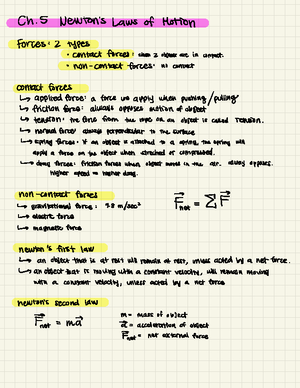 Ch. 5 Newton's Laws of Motion
Forces: 2 types
• contact forces: when 2 objects are in contact.
• non-contact forces: no contact
contact forces
↳ applied force: a force we apply when pushing/pulling
↳ friction force: always opposes motion of object
↳ tension: the force from the rope on an object is called tension.
↳ normal force: always perpendicular to the surface
↳ spring forces: if an object is attached to a spring, the spring will
apply a force on the object when stretched or compressed.
↳ drag forces: friction forces when object moves in the air. always opposes.
higher speed = higher drag.
non-contact forces
↳ gravitational force: 9.8 m/sec²
↳ electric force
↳ magnetic force
F⃗net = ΣF⃗
newton's first law
↳ an object that is at rest will remain at rest, unless acted by a net force.
↳ an object that is moving with a constant velocity, will remain moving
with a constant velocity, unless acted by a net force
newton's second law
F⃗net = ma⃗
m = mass of object
a⃗ = acceleration of object
F⃗net = net external force